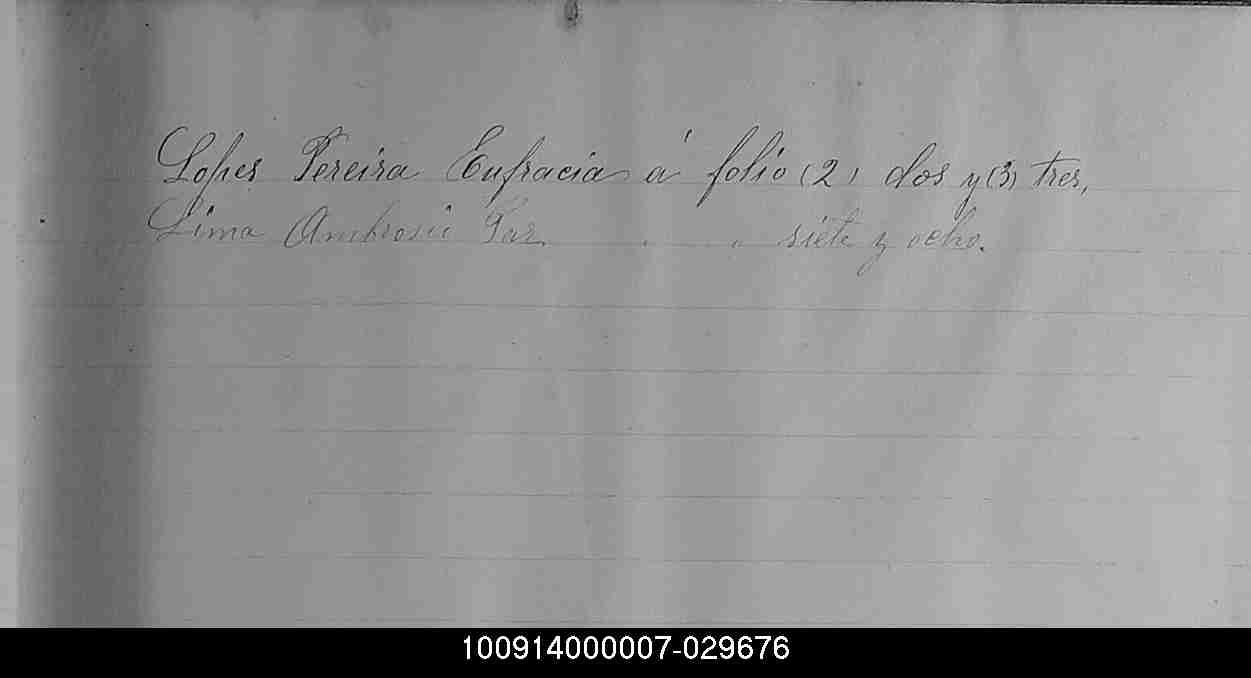 Lopes Pereira Eufracia á folio (2) dos y (3) tres,
Lima Ambrosio Paz " " siete y ocho.
100914000007-029676